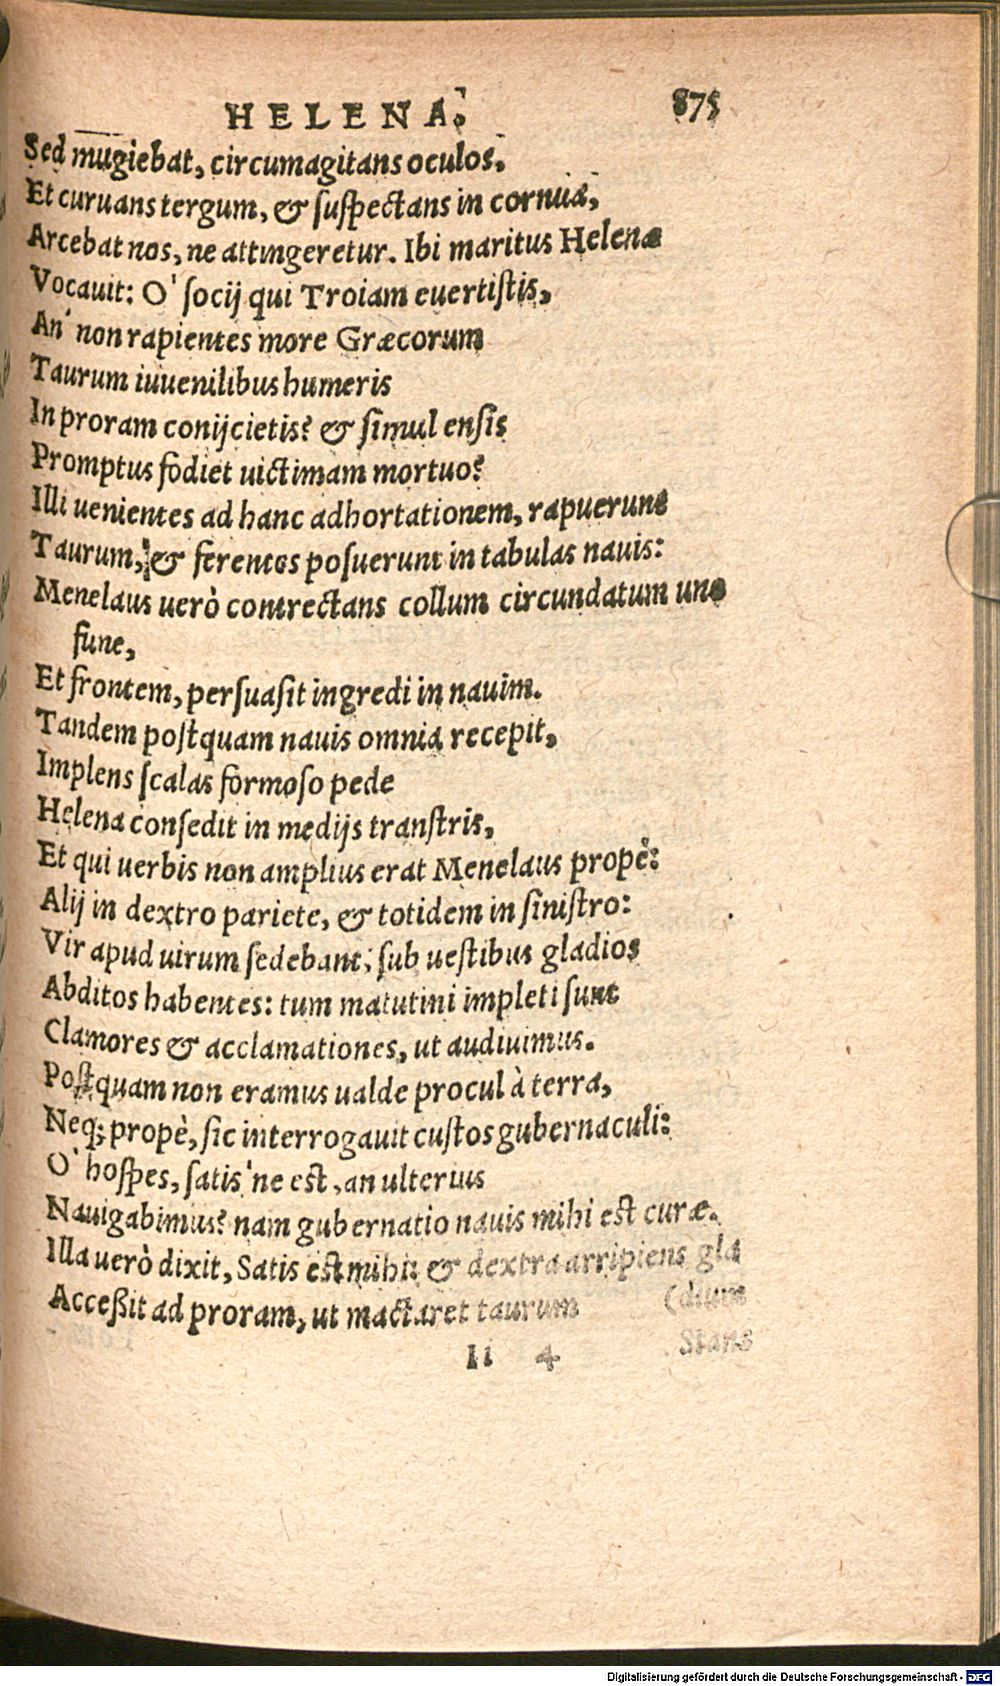 HELENA. 875
Sed mugiebat, circumagitans oculos,
Et curuans tergum, & ſuſpectans in cornua,
Arcebat nos, ne attingeretur. Ibi maritus Helenæ
Vocauit: O' ſocij qui Troiam euertiſtis,
An' non rapientes more Græcorum
Taurum iuuenilibus humeris
In proram conijcietis? & ſimul enſis
Promptus fodiet uictimam mortuo?
Illi uenientes ad hanc adhortationem, rapuerunt
Taurum, & ferentes poſuerunt in tabulas nauis:
Menelaus uerò contrectans collum circundatum uno
fune,
Et frontem, perſuaſit ingredi in nauim.
Tandem poſtquam nauis omnia recepit,
Implens ſcalas formoſo pede
Helena conſedit in medijs tranſtris,
Et qui uerbis non amplius erat Menelaus propè:
Alij in dextro pariete, & totidem in ſiniſtro:
Vir apud uirum sedebant, ſub ueſtibus gladios
Abditos habentes: tum matutini impleti ſunt
Clamores & acclamationes, ut audiuimus.
Poſtquam non eramus ualde procul à terra,
Neq; propè, ſic interrogauit cuſtos gubernaculi:
O' hoſpes, ſatis'ne est, an ulterius
Nauigabimus? nam gubernatio nauis mihi est curæ.
Illa uerò dixit, Satis est mihi: & dextra arripiens gla
Acceßit ad proram, ut mactaret taurum (dium
Ii 4 Stans
Digitalisierung gefördert durch die Deutsche Forschungsgemeinschaft - DFG